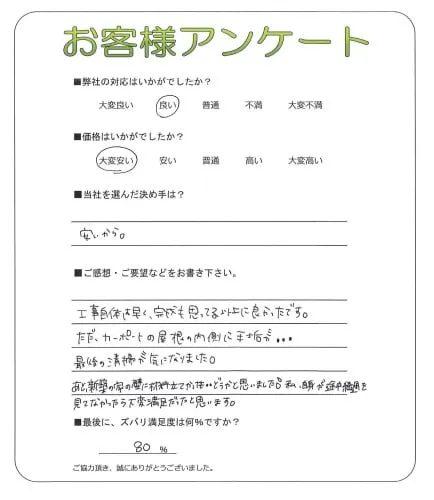 お客様アンケート
■弊社の対応はいかがでしたか?
大変良い 良い 普通 不満 大変不満
■価格はいかがでしたか?
大変安い 安い 普通 高い 大変高い
■当社を選んだ決め手は?
安いから。
■ご感想・ご要望などをお書き下さい。
工事自体は早く、完成も思ってる以上に良かったです。
ただ、カーポートの屋根の内側に手垢が...
最後の清掃が気になりました。
あと、新築の家の壁に材料立てかけ...どうかと思いました。私、嫁が途中経過を
見てなかったら大変満足だったと思います。
■最後に、ズバリ満足度は何%ですか?
80 %
ご協力頂き、誠にありがとうございました。